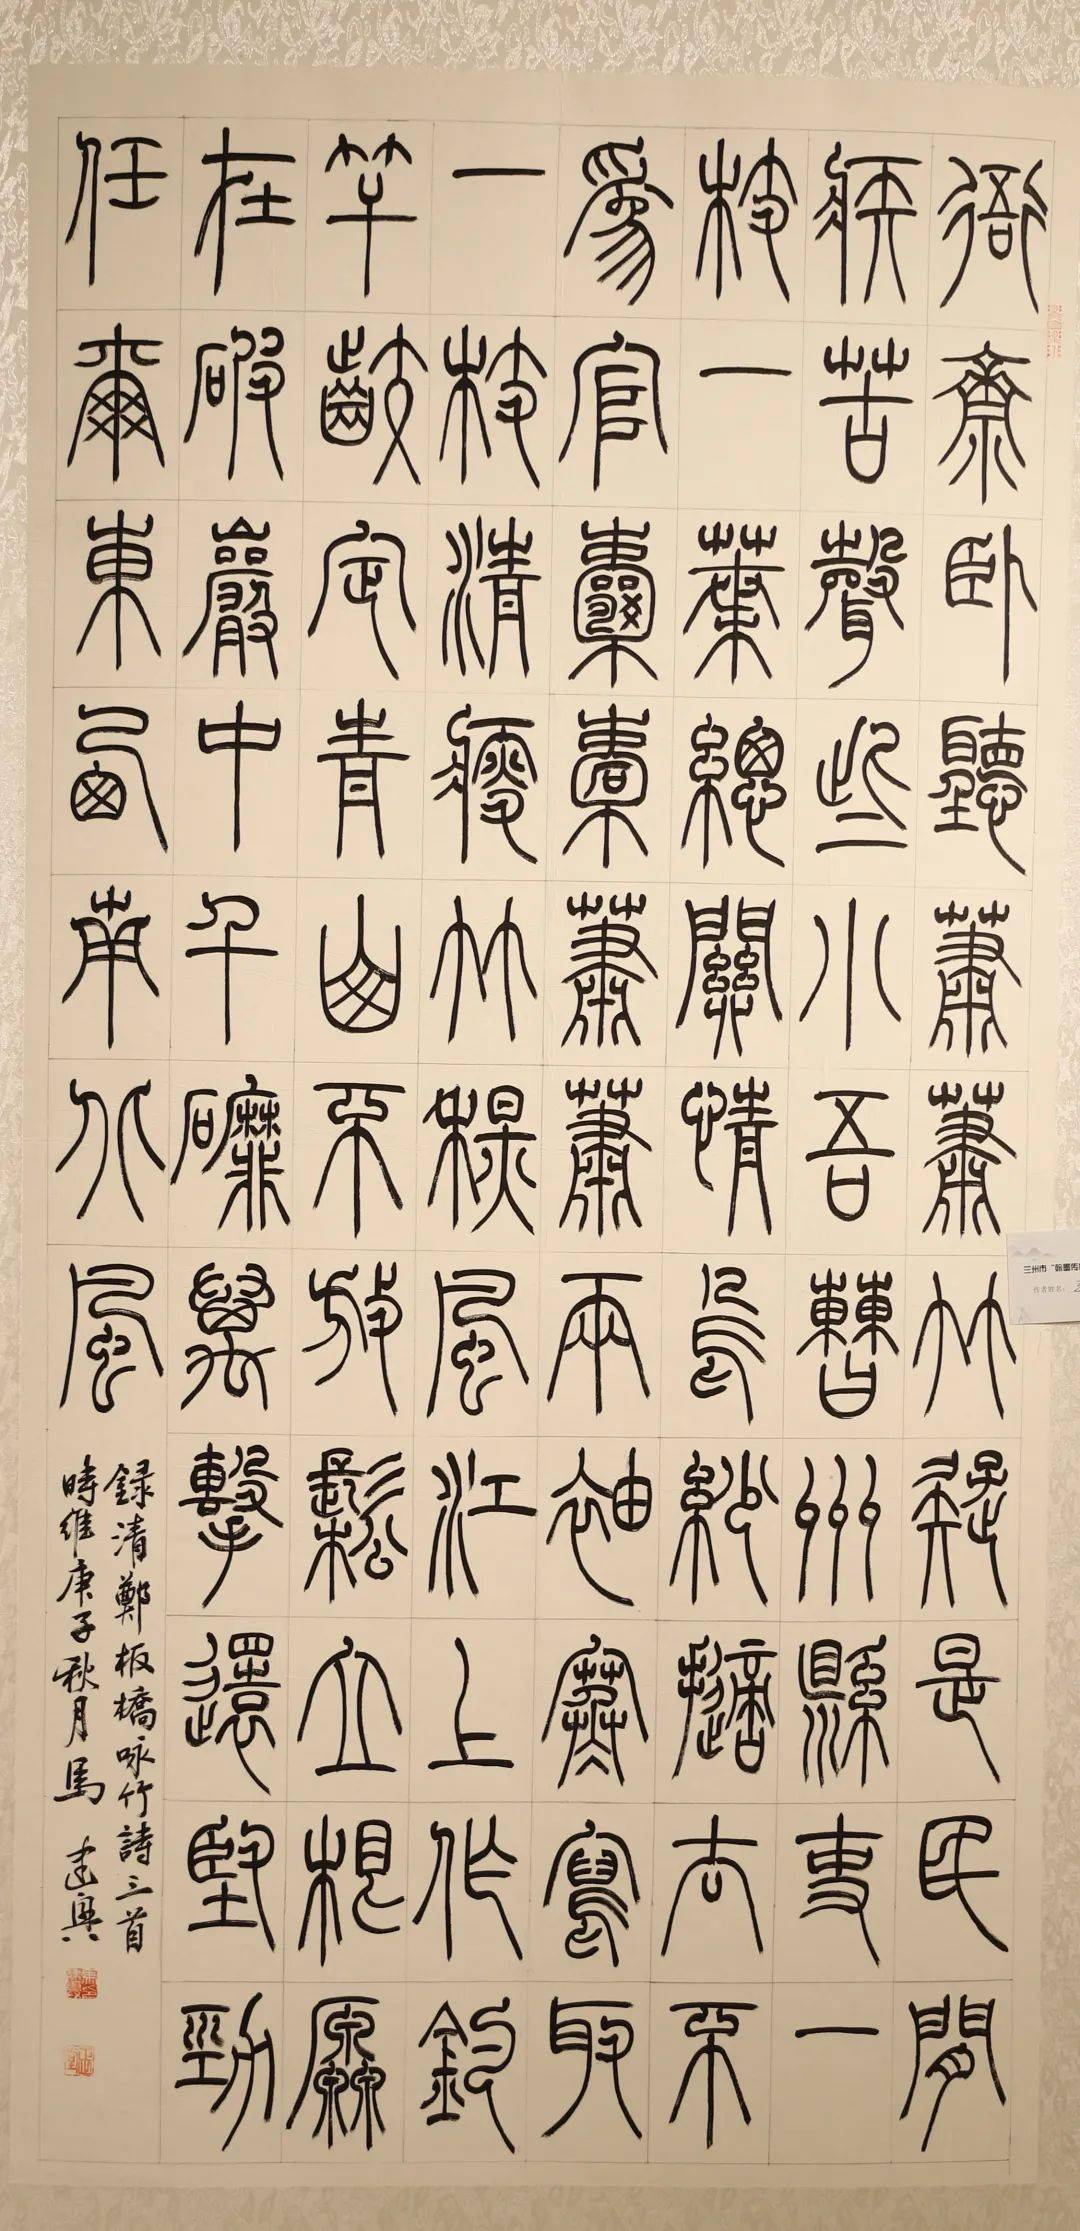 衙齋卧聽蕭蕭竹疑是民間
疾苦聲些小吾曹州縣吏一
枝一葉總關情烏紗擲去不
為官囊橐蕭蕭兩袖寒寫取
一枝清瘦竹秋風江上作釣
竿齩定青山不放鬆立根原
在破巖中千磨萬擊還堅勁
任爾東西南北風
録清鄭板橋咏竹詩三首
時維庚子秋月馬建興
兰州市“翰墨传
作者姓名：